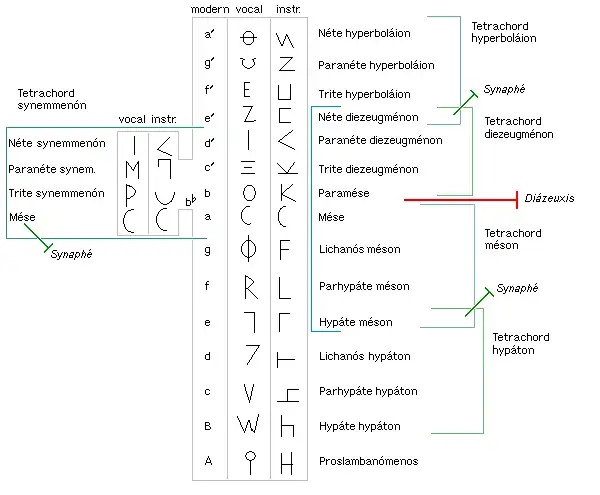 modern vocal instr.
Tetrachord
hyperboláion
a′ Néte hyperboláion
g′ Paranéte hyperboláion
f′ E Trite hyperboláion
Synaphé
e′ Z Néte diezeugménon
Tetrachord
diezeugménon
d′ I Paranéte diezeugménon
c′ Ξ Trite diezeugménon
b O K Paramése
Diázeuxis
a C C Mése
Tetrachord
méson
g Φ F Lichanós méson
f R L Parhypáte méson
Synaphé
e Γ Hypáte méson
Tetrachord
hypáton
d Lichanós hypáton
c V Parhypáte hypáton
B W h Hypáte hypáton
A H Proslambanómenos
Tetrachord
synemmenón
vocal instr.
Néte synemmenón I <
Paranéte synem. M
Trite synemmenón P b♭
Mése C C
Synaphé